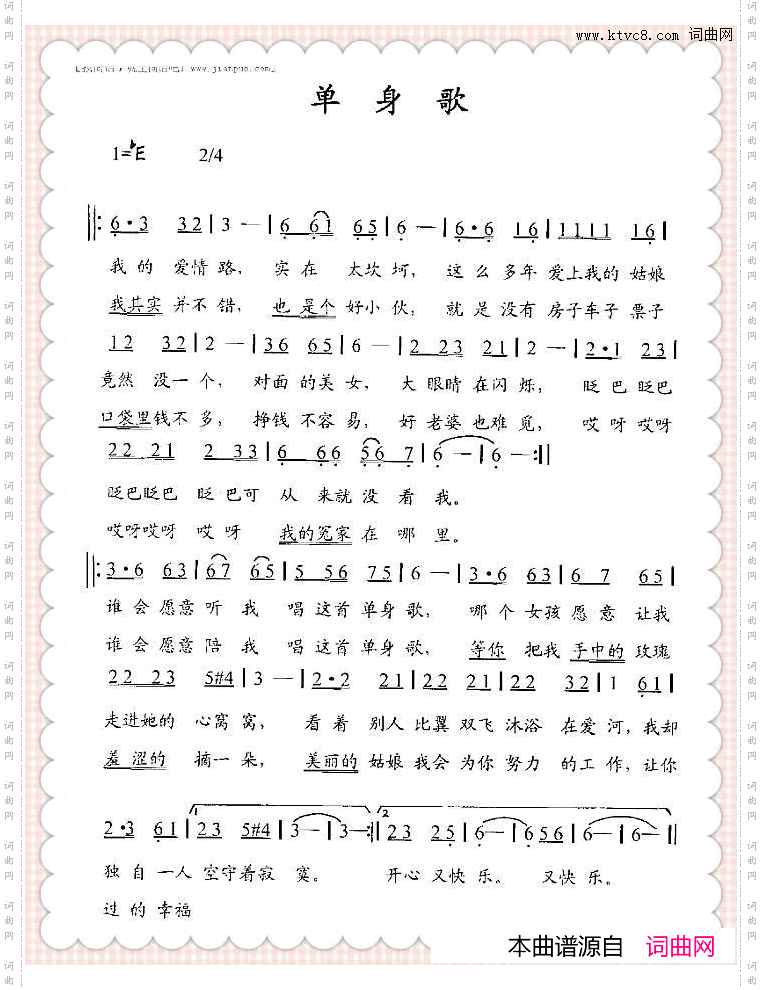 www.ktvc8.com 词曲网
www.jianpuo.com
单身歌
1=♭E 2/4
6·3 32|3 —|6 61 65|6 —|6·6 16|1111 16|
我的 爱情路, 实在 太坎坷, 这么多年 爱上我的 姑娘
我其实 并不错, 也是个 好小伙, 就是没有 房子车子 票子
12 32|2 —|36 65|6 —|2 23 21|2 —|2·1 23|
竟然 没一个, 对面的美女, 大眼睛在闪烁, 眨巴眨巴
口袋里钱不多, 挣钱不容易, 好老婆也难觅, 哎呀哎呀
22 21 2 33|6 66 56 7|6 —|6 —:||
眨巴眨巴 眨巴可 从来就没看我。
哎呀哎呀 哎呀 我的冤家在哪里。
||:3·6 63|67 65|5 56 75|6 —|3·6 63|6 7 65|
谁会愿意听我 唱这首单身歌, 哪个女孩愿意让我
谁会愿意陪我 唱这首单身歌, 等你 把我 手中的 玫瑰
22 23 5#4|3 —|2·2 21|22 21|22 32|1 61|
走进她的 心窝窝, 看着 别人比翼双飞沐浴 在爱河,我却
羞涩的 摘一朵, 美丽的 姑娘我会为你努力 的工作,让你
2·3 61|23 5#4|3—|3—:||23 25|6—|6656|6—|6—||
独自一人空守着寂寞。 开心又快乐。 又快乐。
过的幸福
本曲谱源自 词曲网